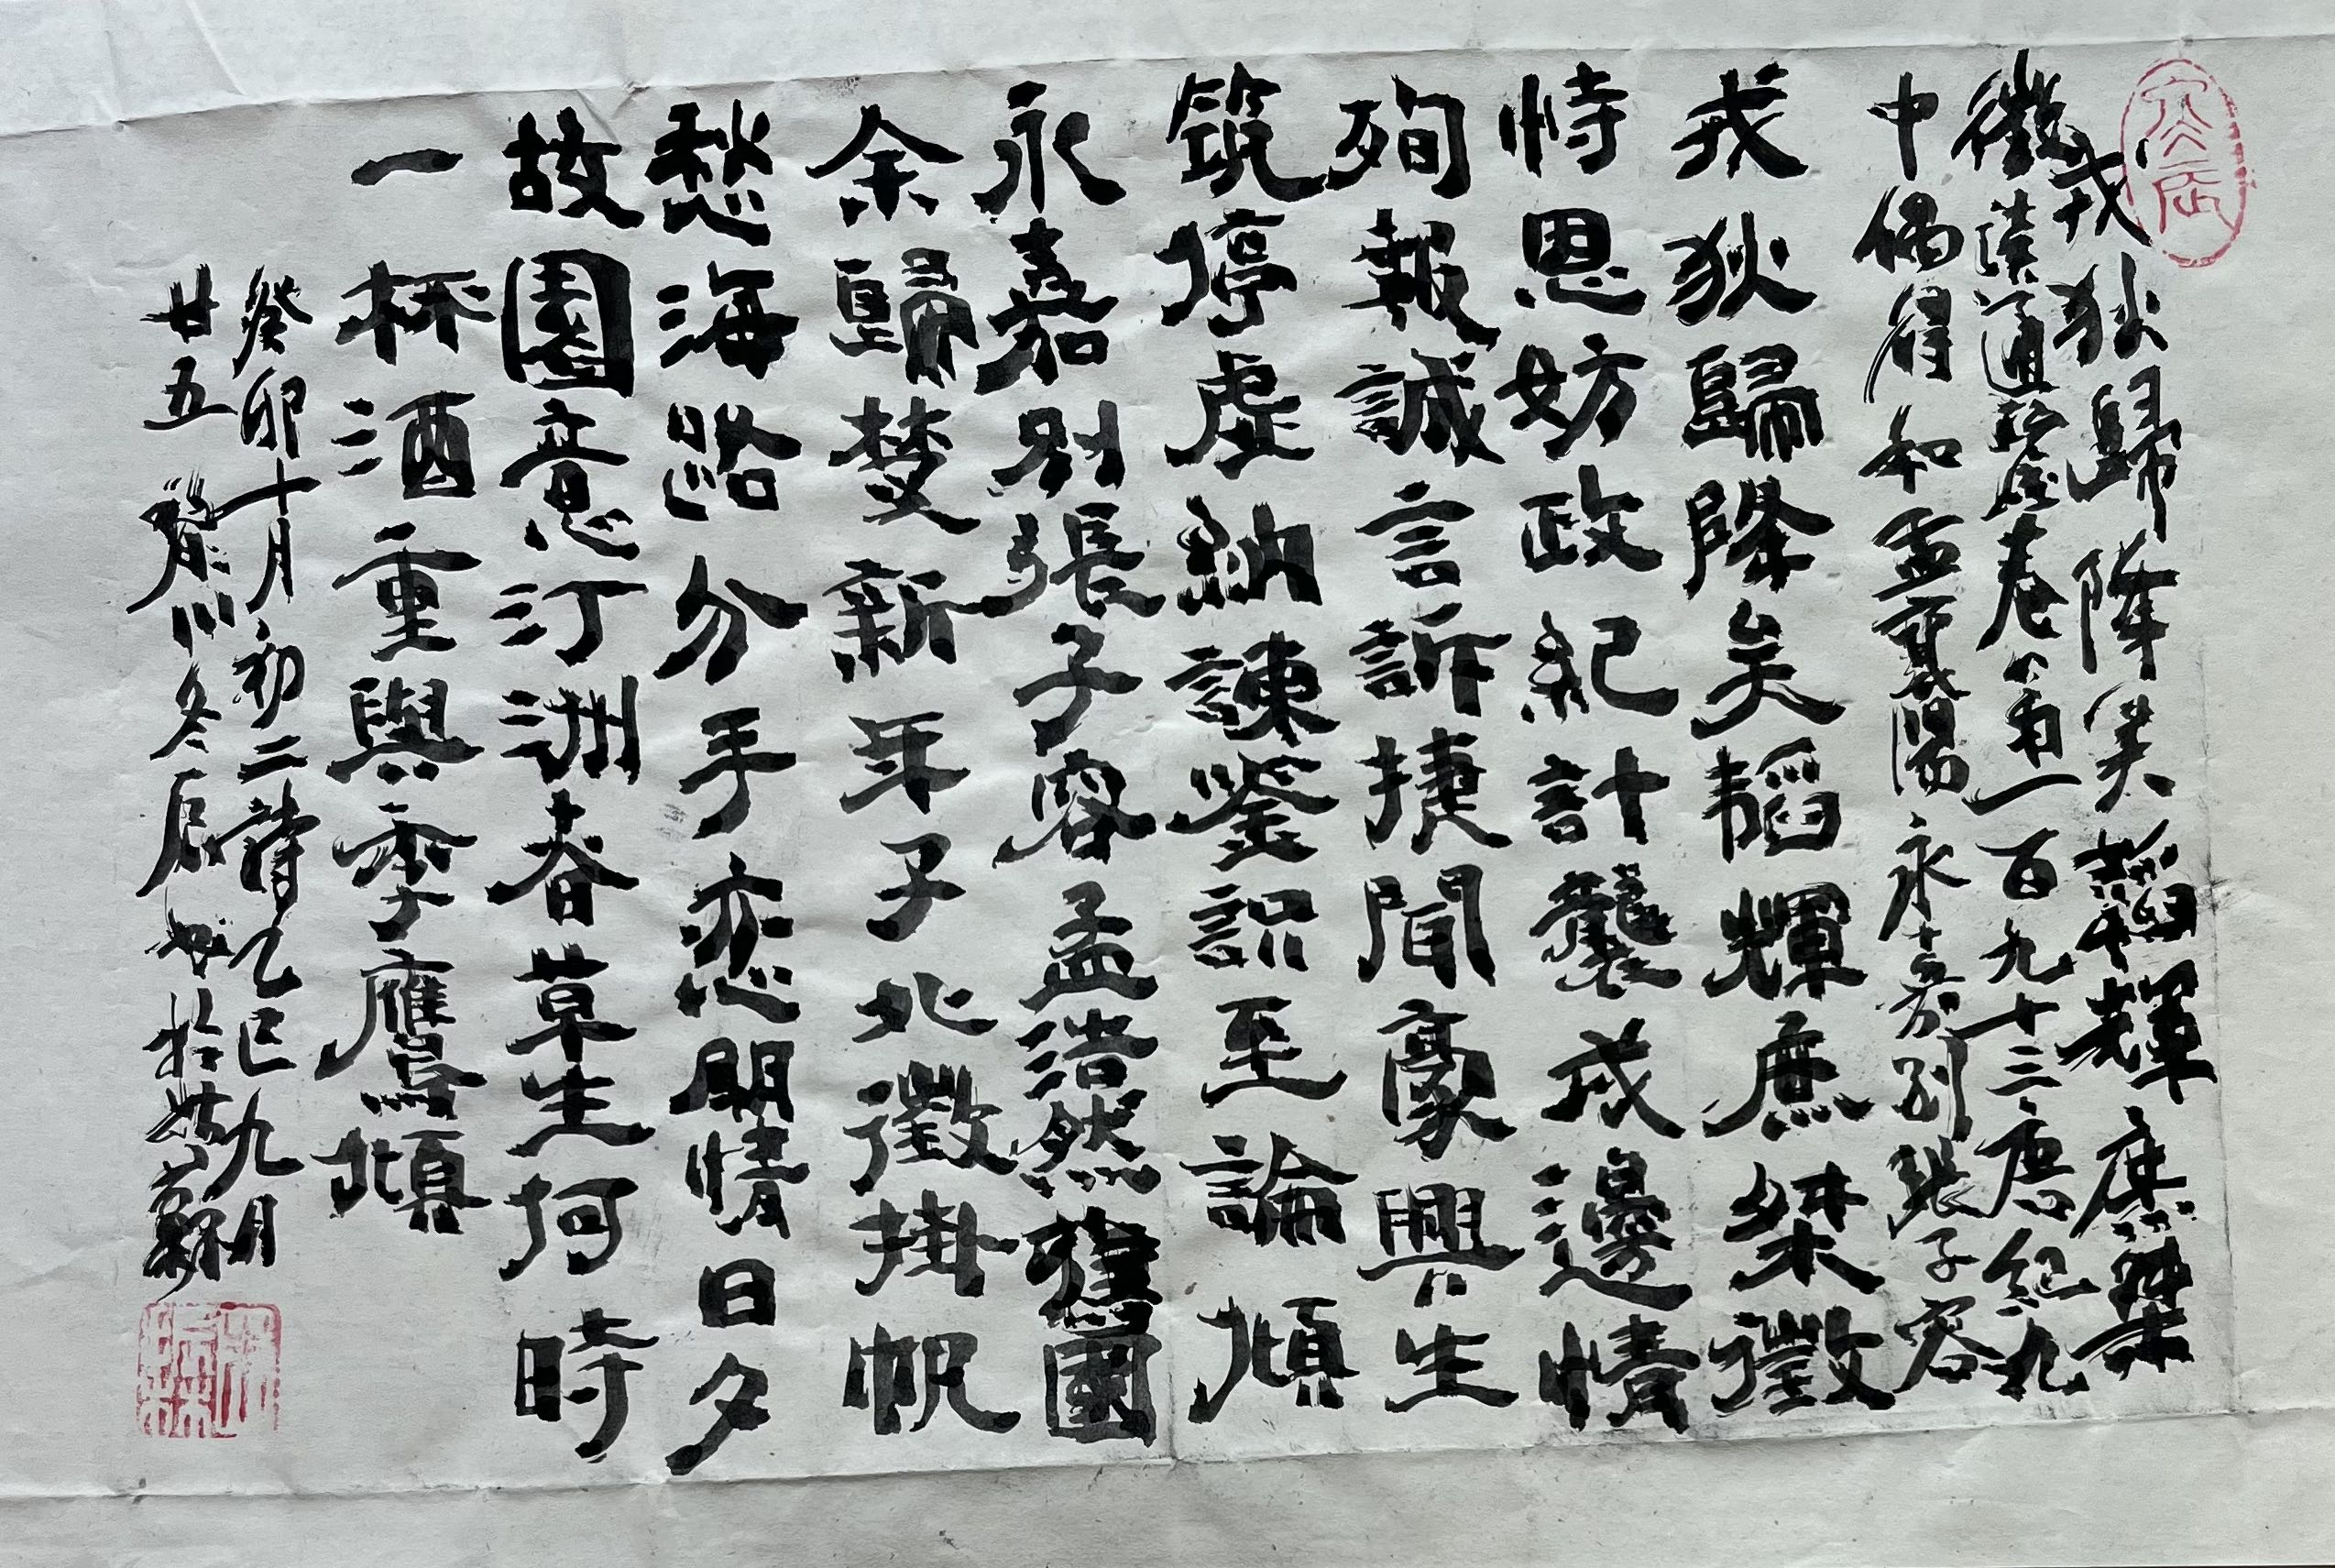 戎狄歸降矣韜輝庶桀
徵讀通鑑卷第一百九十三唐紀九
中偶得和孟襄陽永嘉別張子容
戎狄歸降矣韜輝庶桀徵
恃恩妨政紀計襲戎邊情
殉報誠言訴捷聞豪興生
筑停虛納諫鑒識至論傾
永嘉別張子容孟浩然舊國
余歸楚新年子北徵掛帆
愁海路分手戀朋情日夕
故園意汀洲春草生何時
一杯酒重與季鷹傾
癸卯十月初二詩乙巳九月
廿五川冬於姑蘇